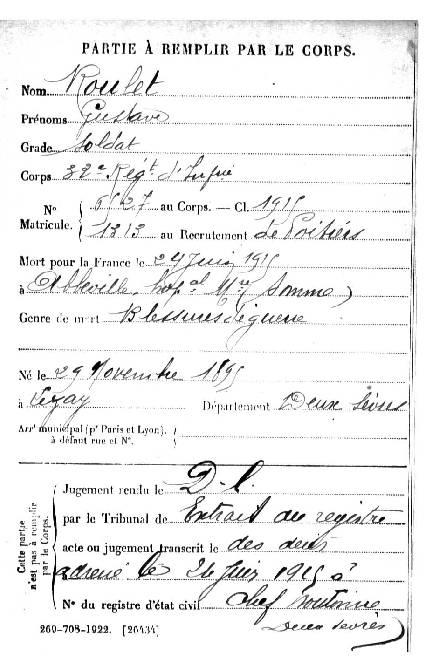 PARTIE À REMPLIR PAR LE CORPS.
Nom Roulet
Prénoms Gustave
Grade Soldat
Corps 32e Régt d'Infrie
N° 9527 au Corps. — Cl. 1915
Matricule. 1313 au Recrutement de Poitiers
Mort pour la France le 24 Juin 1915
à Abbeville, hopal Mre (Somme)
Genre de mort Blessures de guerre
Né le 29 Novembre 1895
à Lezay Département Deux Sèvres
Arrt municipal (pr Paris et Lyon),
à défaut rue et N°.
Cette partie n'est pas à remplir par le Corps.
Jugement rendu le D. C.
par le Tribunal de Extrait du registre
acte ou jugement transcrit le des décès
adressé le 24 Juin 1915 à
N° du registre d'état civil Chef Boutonne
Deux Sèvres
260-708-1922. [26434]